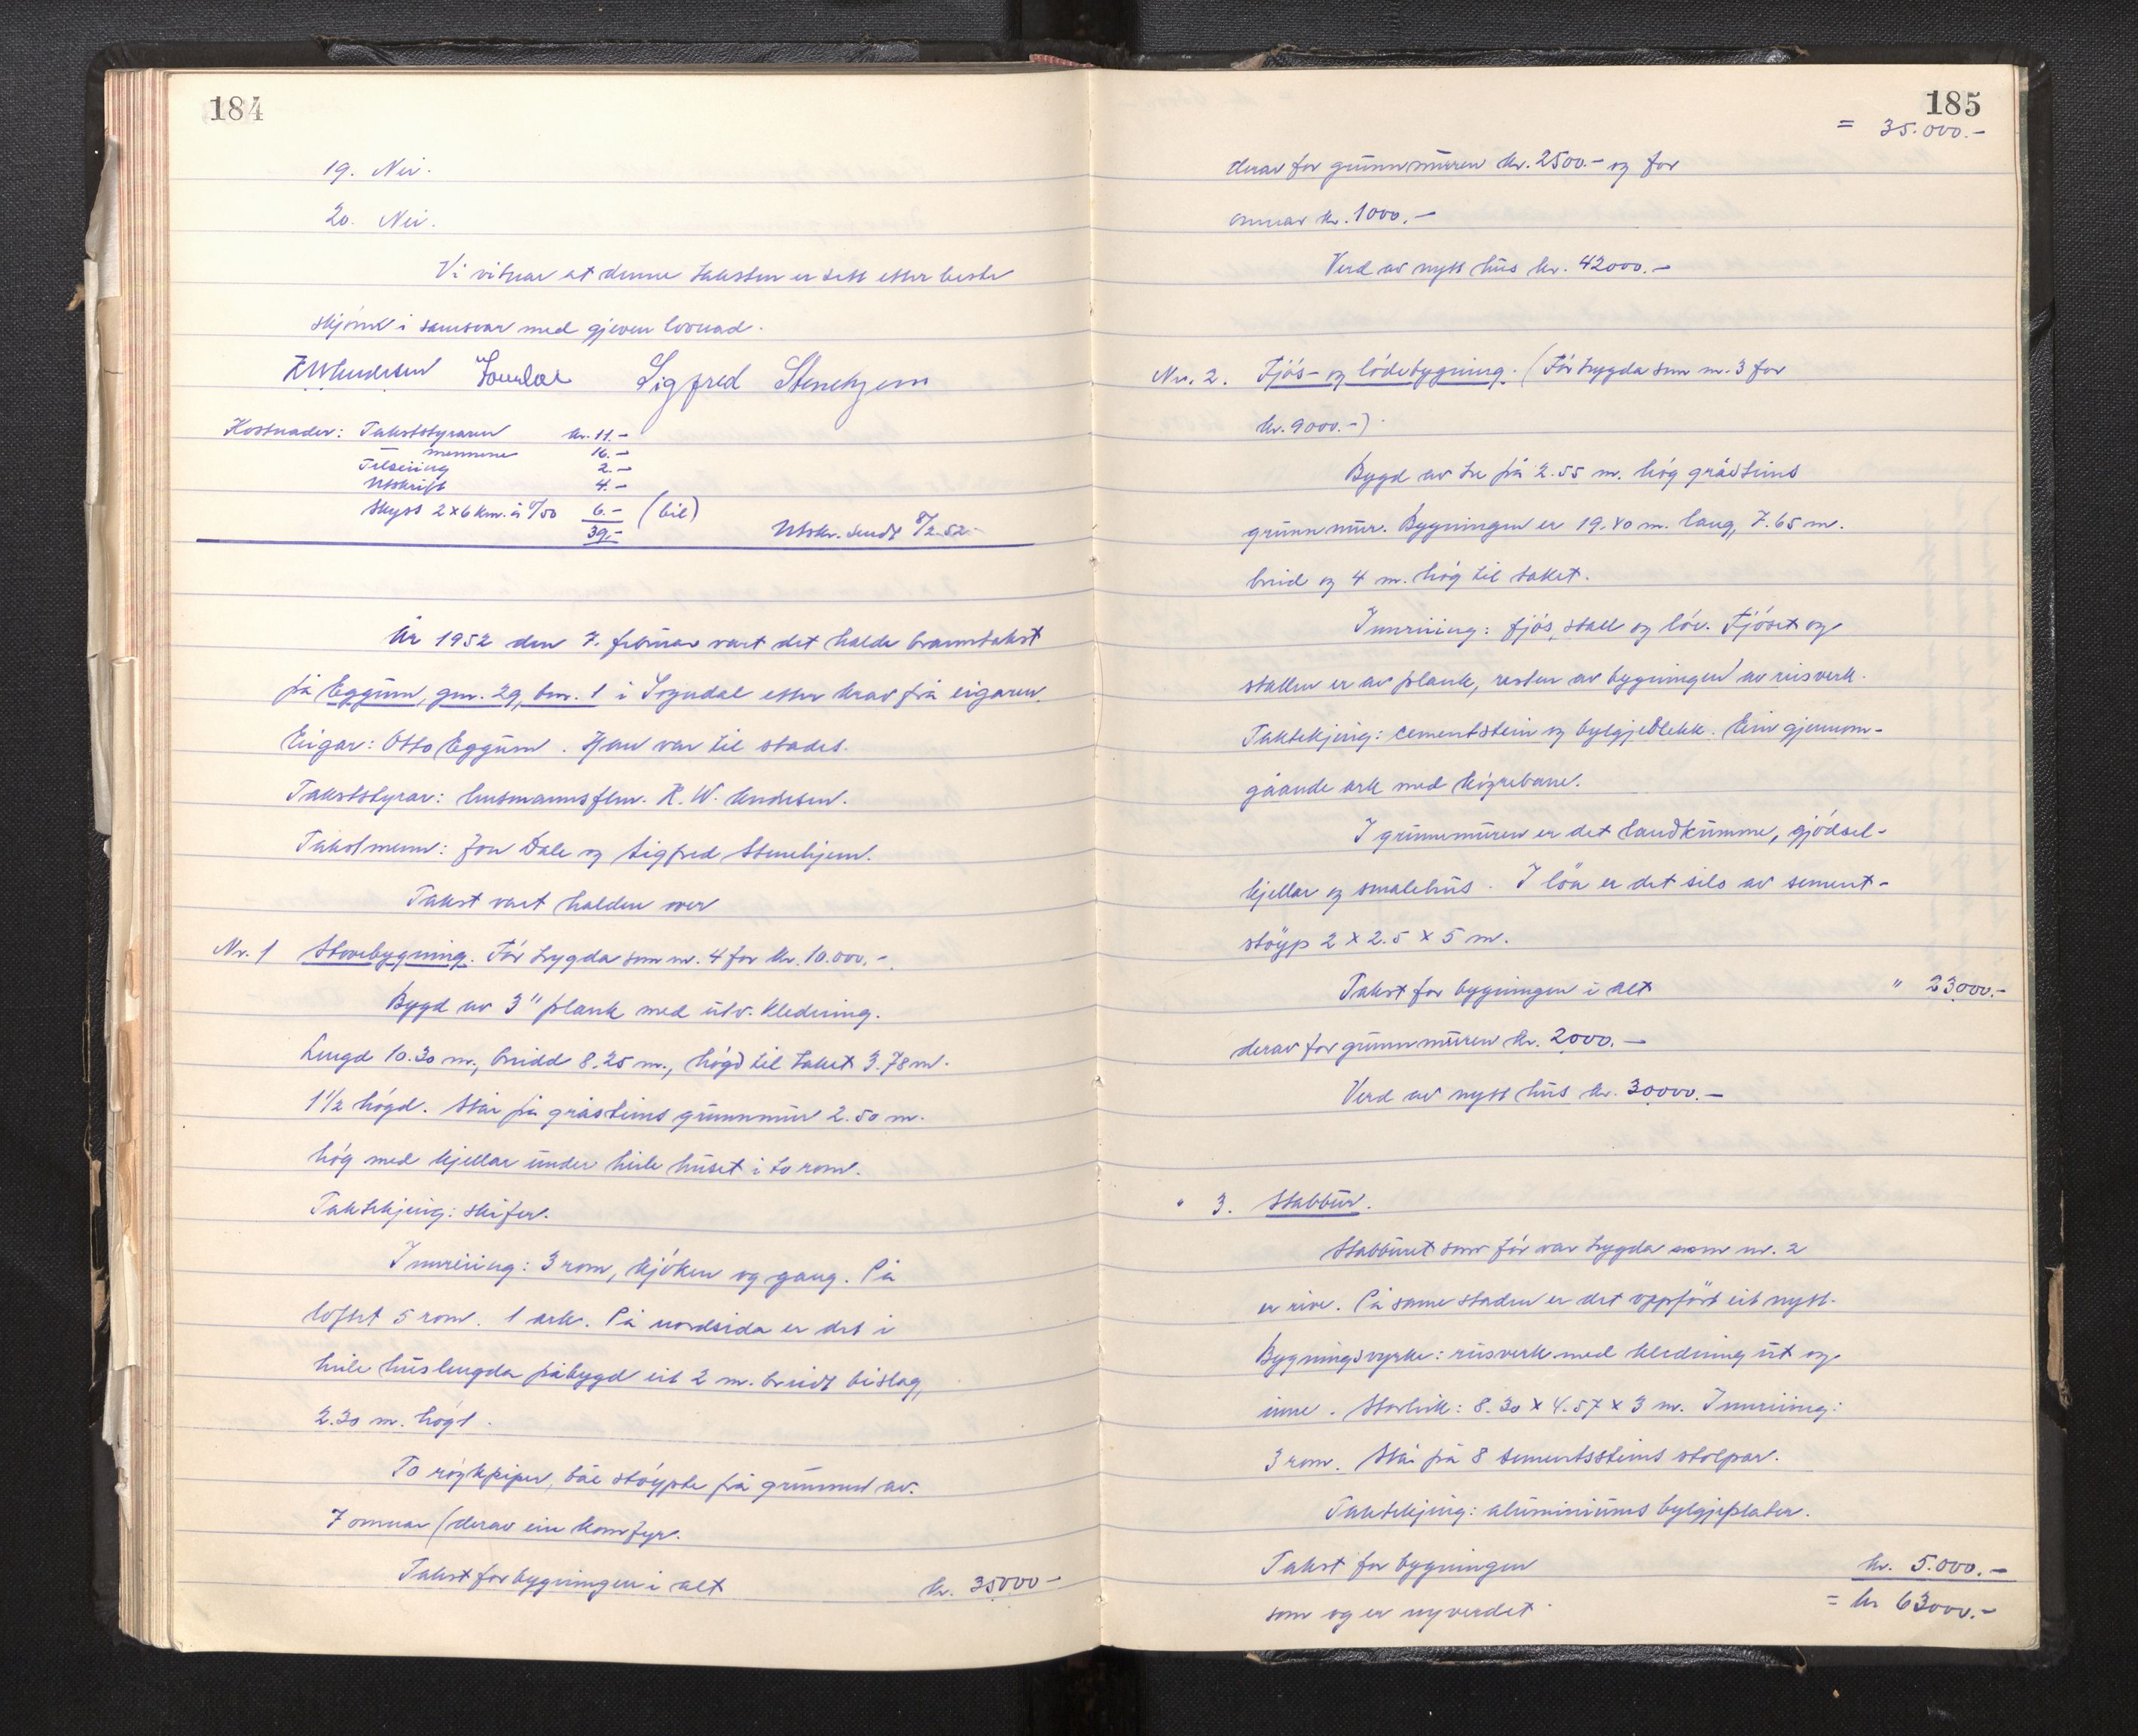 184
19. Nei.
20. Nei.
Vi vitnar at denne taksten er sett etter beste
skjönn i samsvar med gjeven lovnad.
R W Andersen Jon Dale Sigfred Stenehjem
Kostnader: Takststyraren kr. 11.-
— mennene 16.-
Tilseiing 2.-
Utskrift 4.-
Skyss 2 x 6 km. à 0/50 6.- (bil)
39.- Utskr. sendt 8/2-52.
År 1952 den 7. februar vart det halde branntakst
på Eggum, gnr. 29, bnr. 1 i Sogndal etter krav frå eigaren.
Eigar: Otto Eggum. Han var til stades.
Takststyrar: lensmannsflm. R. W. Andersen.
Takstmenn: Jon Dale og Sigfred Stenehjem.
Takst vart halden over
Nr. 1 Stovebygning. För trygda som nr. 4 for kr. 10.000.-
Bygd av 3" plank med utv. kledning.
Lengd 10.30 m., breidd 8.25 m., högd til taket 3.78 m.
1½ högd. Står på gråsteins grunnmur 2.50 m.
hög med kjellar under heile huset i to rom.
Taktekjing: skifer.
Innreiing: 3 rom, kjöken og gang. På
loftet 5 rom. 1 ark. På nordsida er det i
heile huslengda påbygd eit 2 m. breidt bislag,
2.30 m. högt.
To röykpiper, båe stöypte frå grunnen av.
7 omnar (derav ein komfyr.
Takst for bygningen i alt kr. 35000-
185
= 35.000.-
derav for grunnmuren kr. 2500.- og for
omnar kr. 1000.-
Verd av nytt hus kr. 42000.-
Nr. 2. Fjös- og lödebygning. (För trygda som nr. 3 for
kr. 9000.-)
Bygd av tre på 2.55 m. hög gråsteins
grunnmur. Bygningen er 19.40 m. lang, 7.65 m.
breid og 4 m. hög til taket.
Innreiing: fjös, stall og löe. Fjöset og
stallen er av plank, resten av bygningen av reisverk.
Taktekjing: cementstein og bylgjeblekk. Ein gjennom-
gåande ark med köyrebane.
I grunnmuren er det landkumme, gjödsel-
kjellar og smalehus. I löa er det silo av sement-
stöyp 2 x 2.5 x 5 m.
Takst for bygningen i alt " 23000.-
derav for grunnmuren kr. 2000.-
Verd av nytt hus kr. 30000.-
" 3. Stabbur.
Stabburet som för var trygda som nr. 2
er rive. På same staden er det oppfört eit nytt.
Bygningsvyrke: reisverk med kledning ut og
inne. Storleik: 8.30 x 4.57 x 3 m. Innreiing:
3 rom. Står på 8 sementsteins stolpar.
Taktekjing: aluminiums bylgjeplater.
Takst for bygningen kr. 5.000.-
som og er nyverdet = kr 63000.-